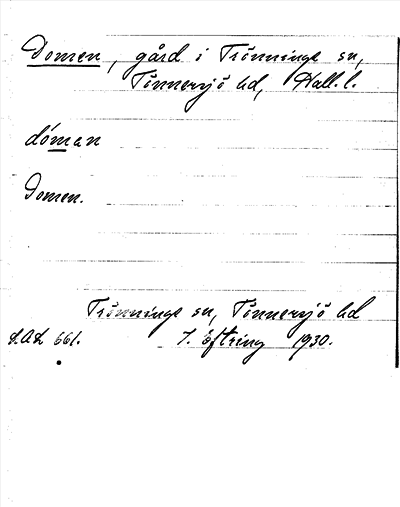 Domen, gård i Trönninge sn,
Tönnersjö hd, Hall. l.
dóman
Domen.
Trönninge sn, Tönnersjö hd
L.A.L. 661. 7. Eftring 1930.